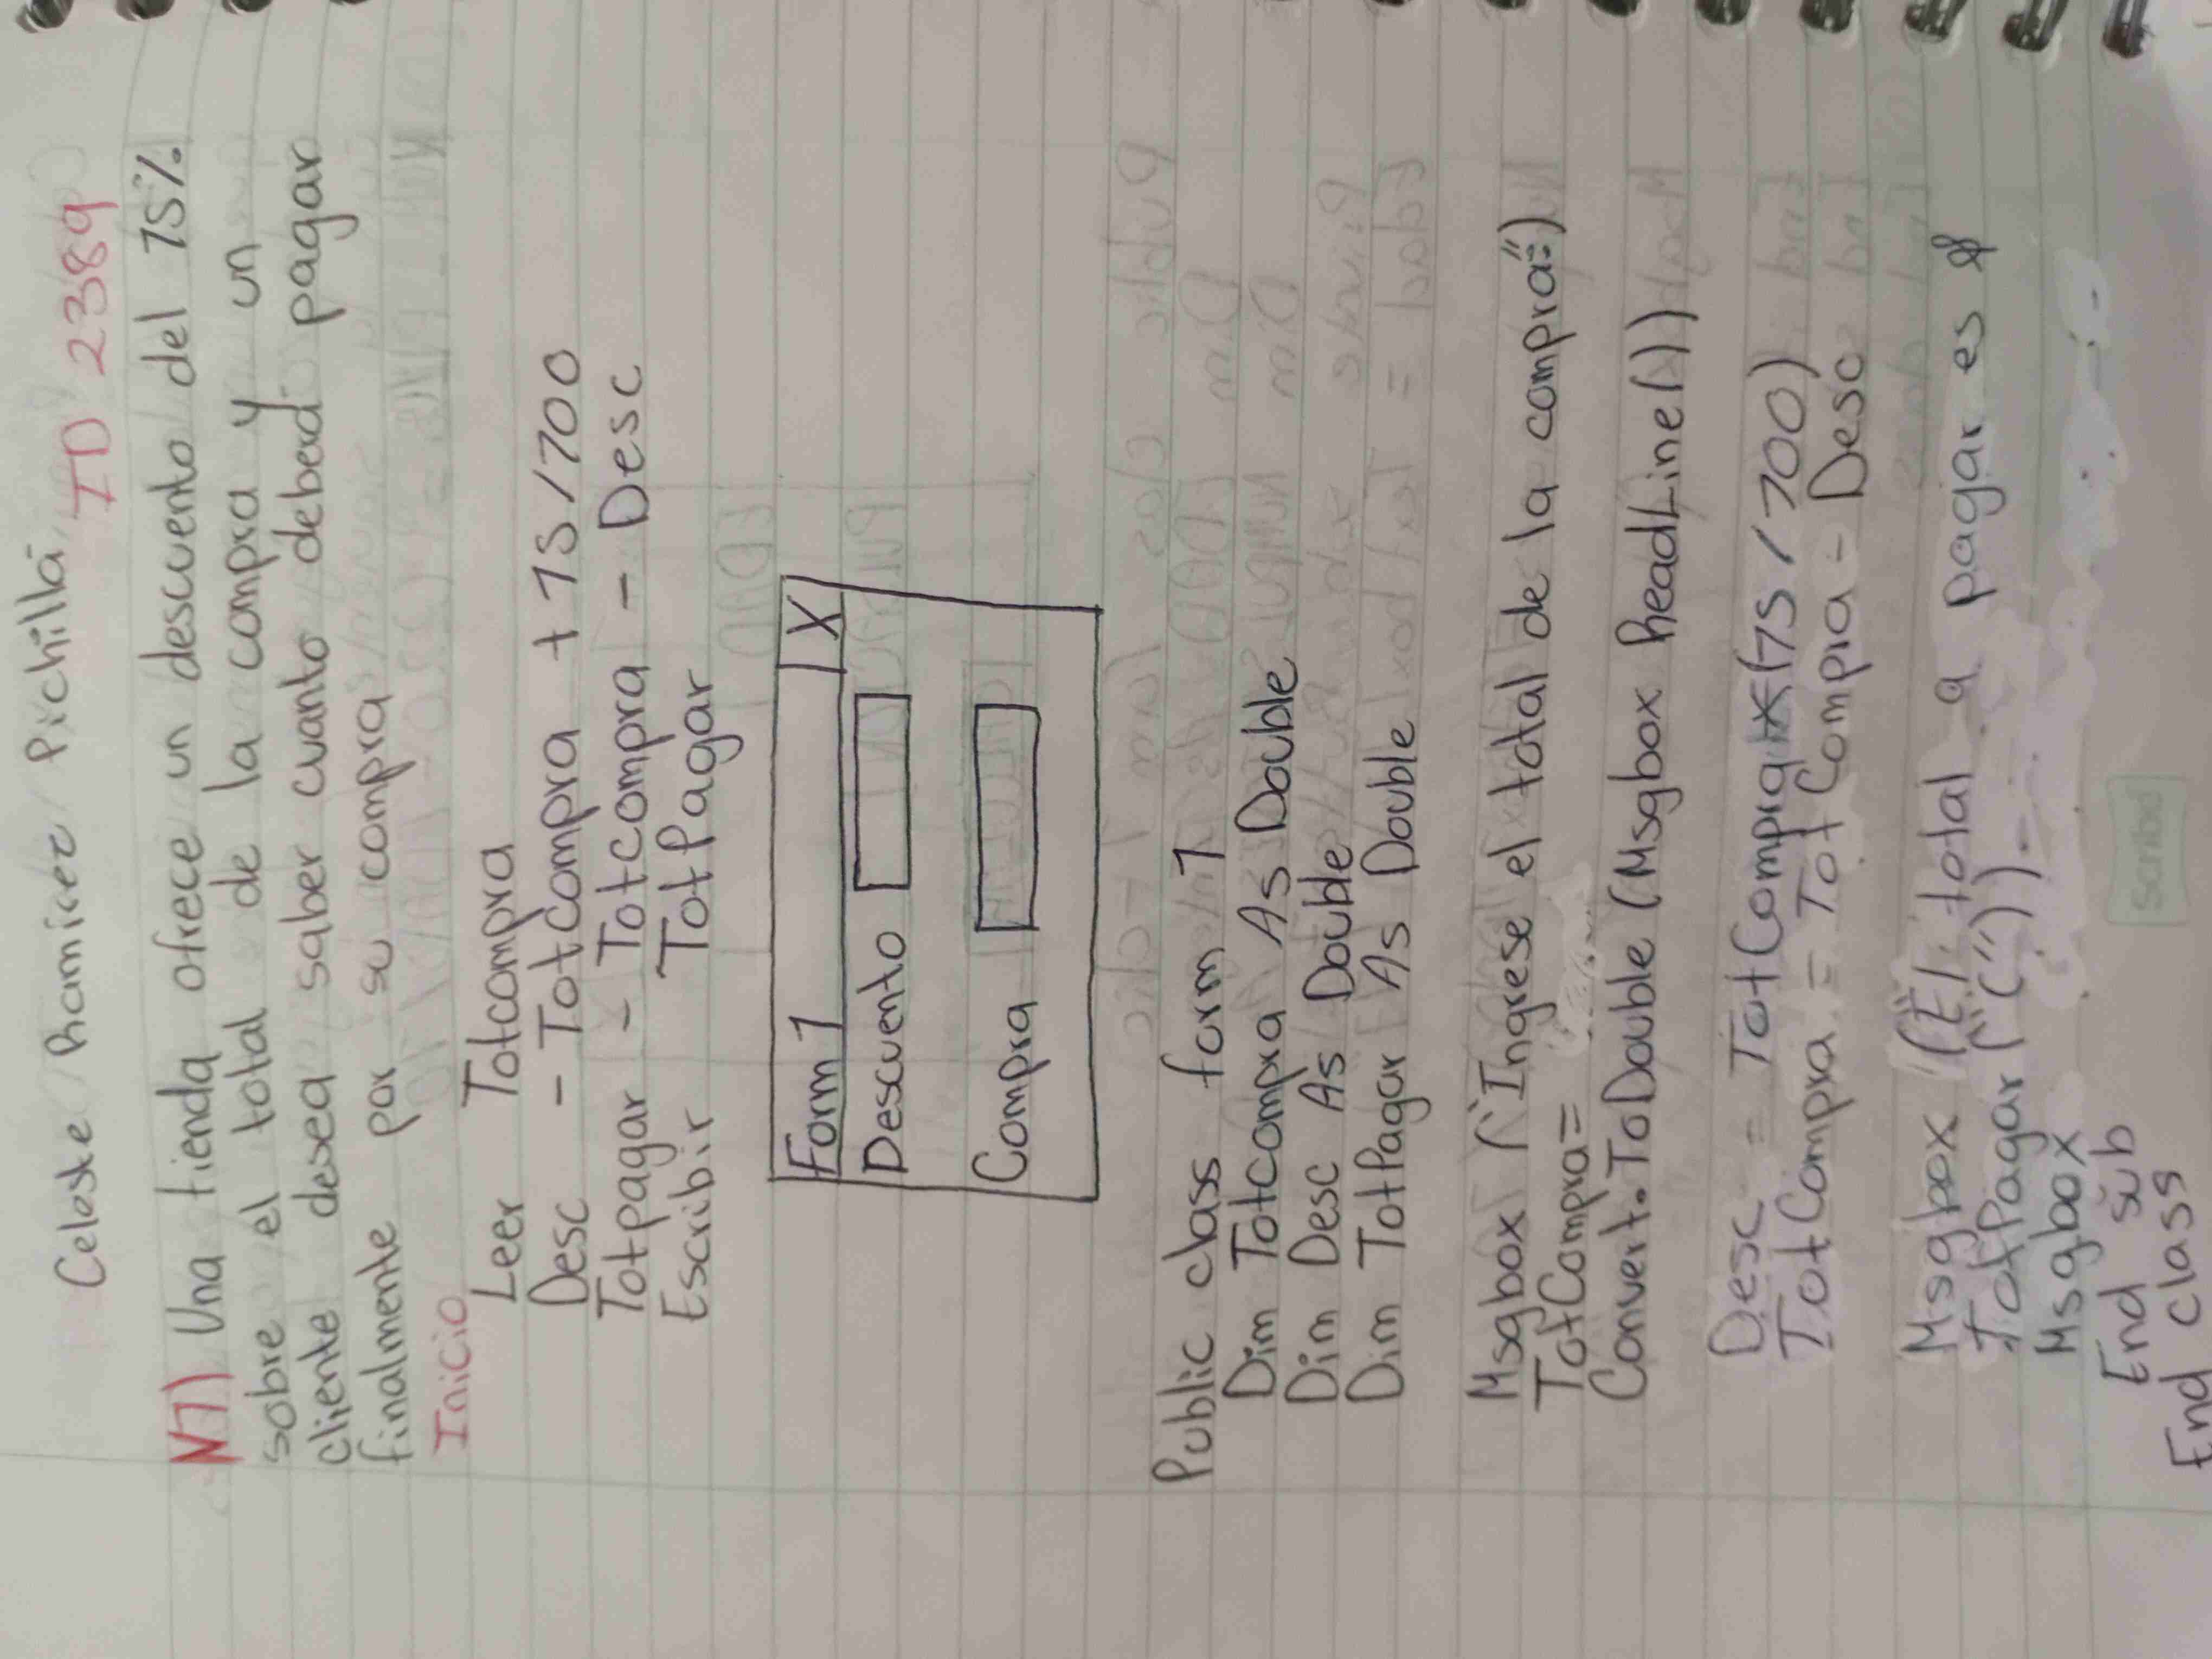 Celeste Ramirez Pichillá
ID 2389
N1) Una tienda ofrece un descuento del 15%
sobre el total de la compra y un
cliente desea saber cuanto deberá pagar
finalmente por su compra
Inicio
Leer Totcompra
Desc - TotCompra + 15/100
Totpagar - Totcompra - Desc
Escribir TotPagar
Form 1 X
Descuento
Compra
Public class form 1
Dim Totcompra As Double
Dim Desc As Double
Dim TotPagar As Double
Msgbox ("Ingrese el total de la compra:")
TotCompra=
Convert.ToDouble (Msgbox ReadLine())
Desc = TotCompra*(15/100)
TotCompra = TotCompra - Desc
Msgbox ("El total a pagar es $
TotPagar ("C"))
Msgbox
End sub
End class
Scribd